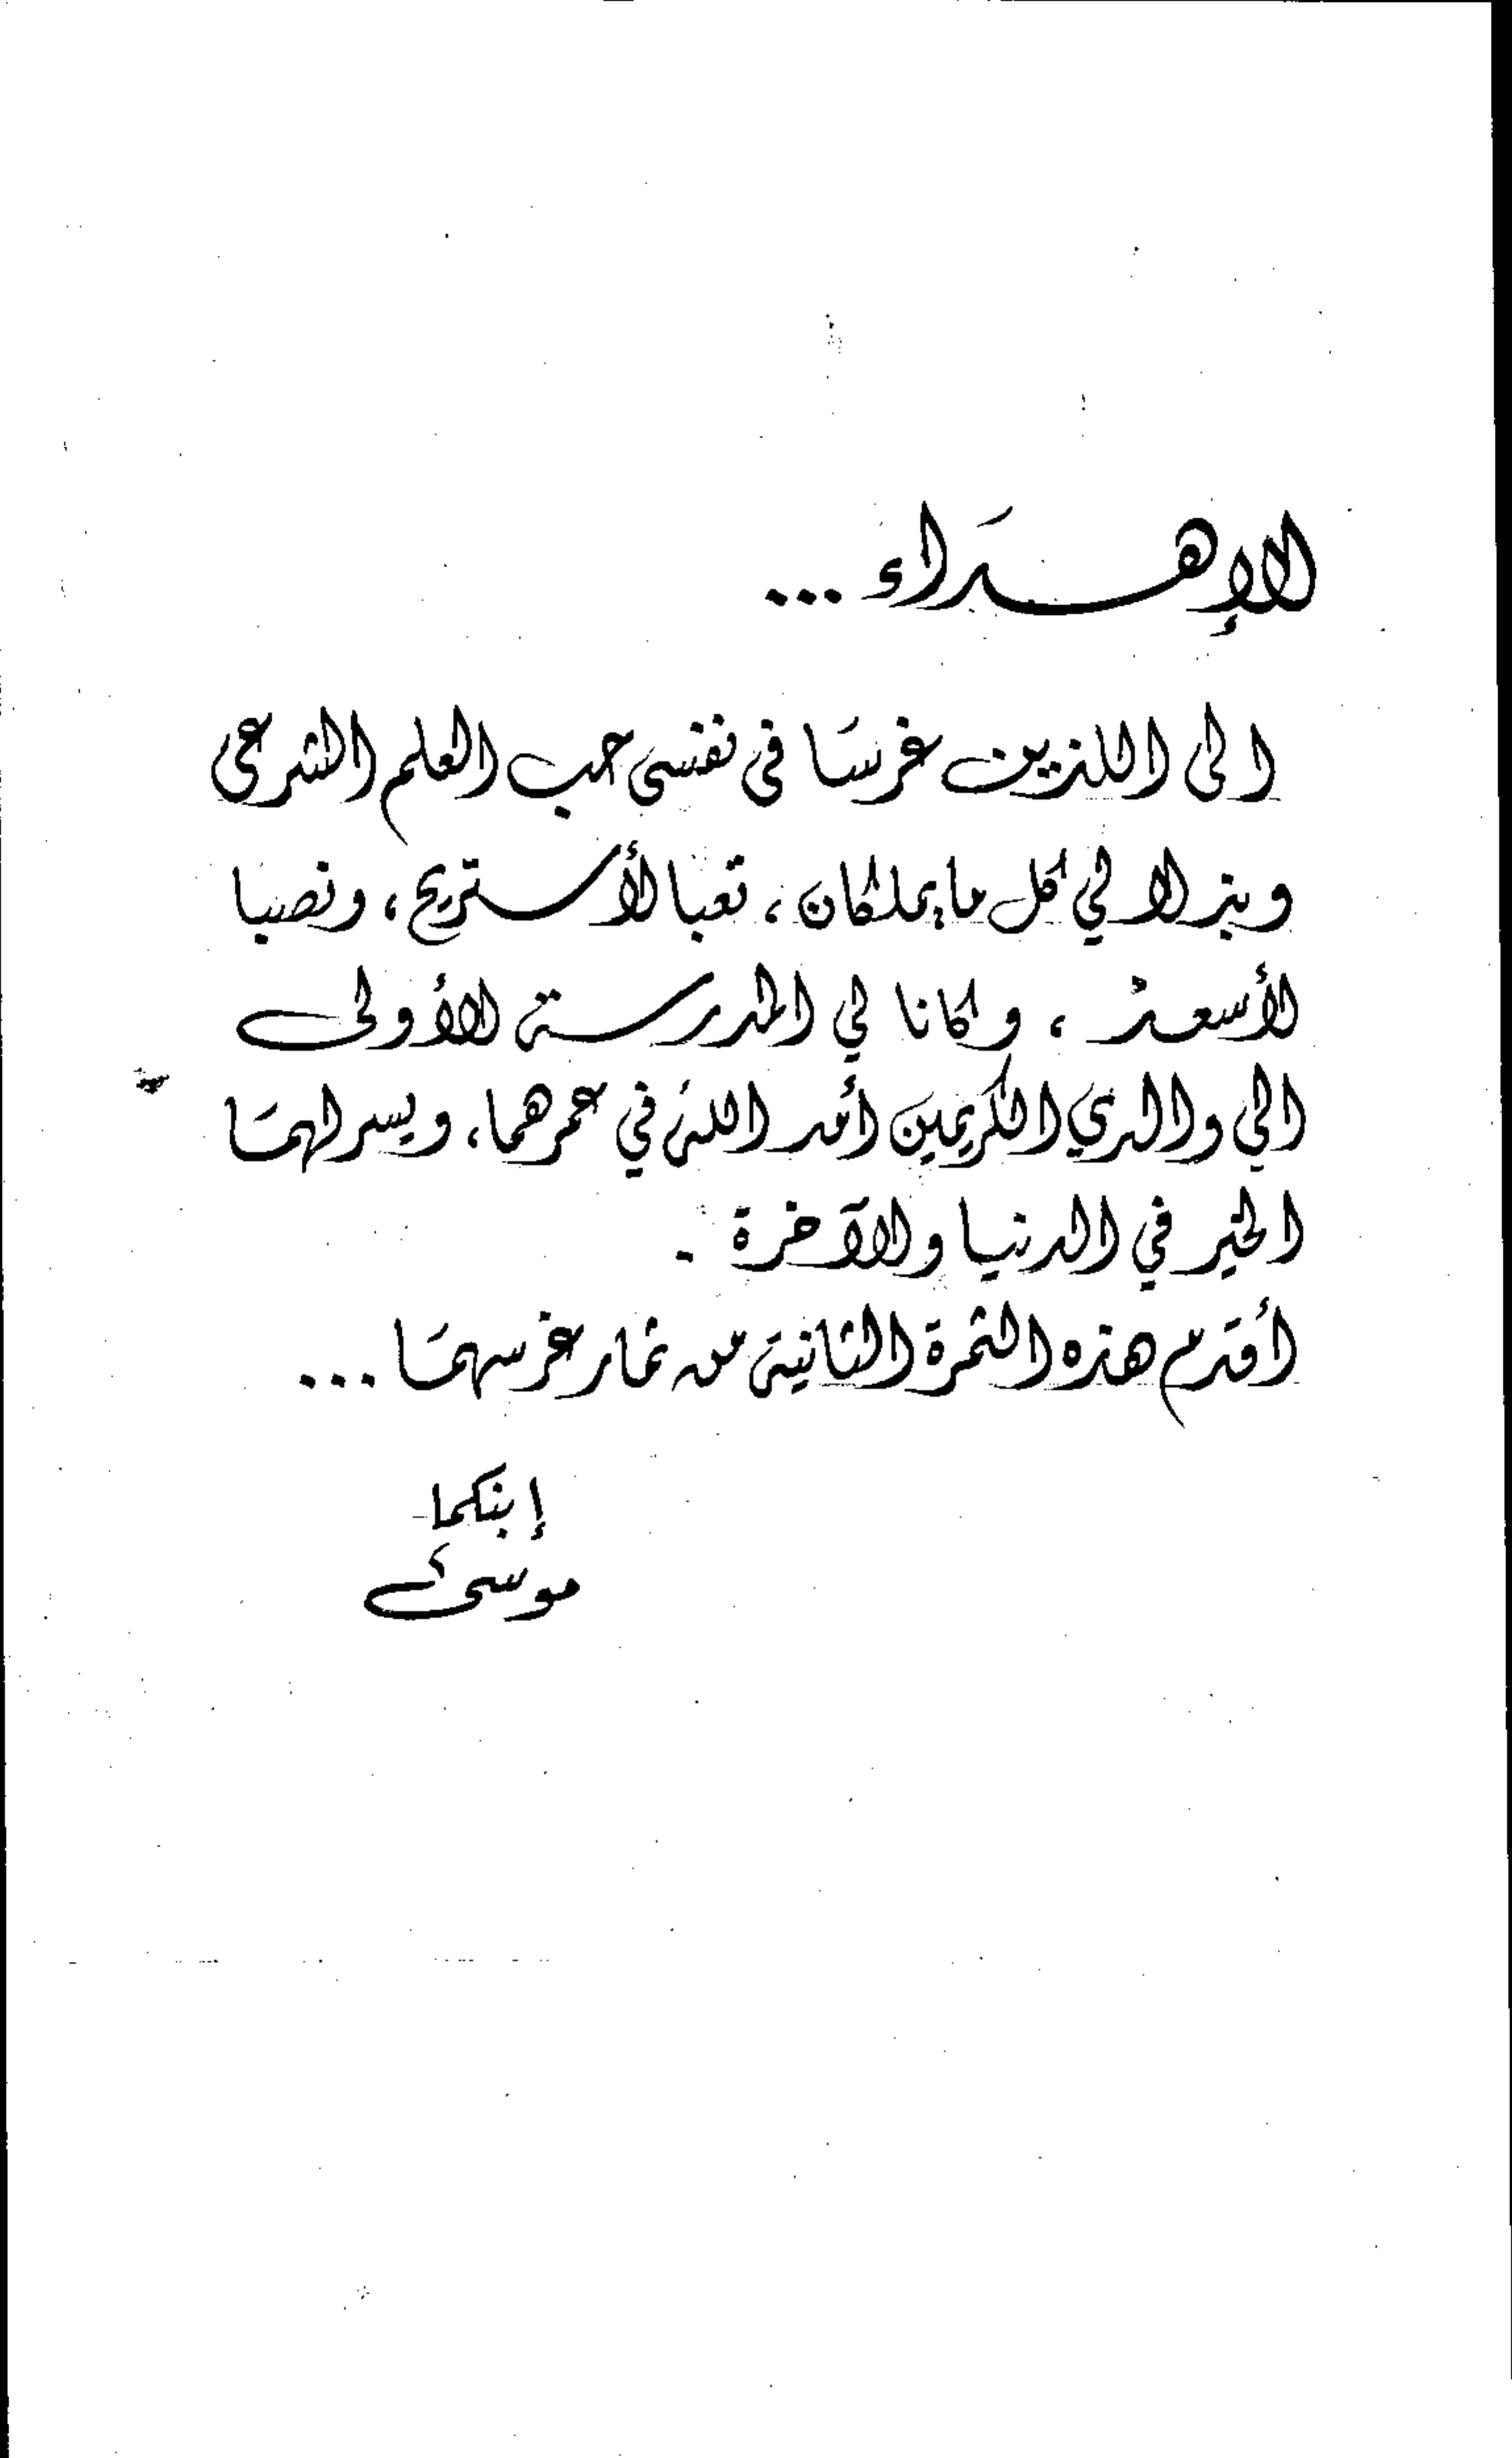 الإهداء ...
الى اللذين غرسا في نفسي حب العلم الشرعي
وبذلا لي كل ما يملكان ، تعبا لأستريح ، ونصبا
لأسعد ، وكانا لي المدرسة الأولى
الى والدي الكريمين أمد الله في عمرهما ، ويسر لهما
الخير في الدنيا والآخرة .
أقدم هذه الثمرة الثانية من ثمار غرسهما ...
إبنكما
موسى